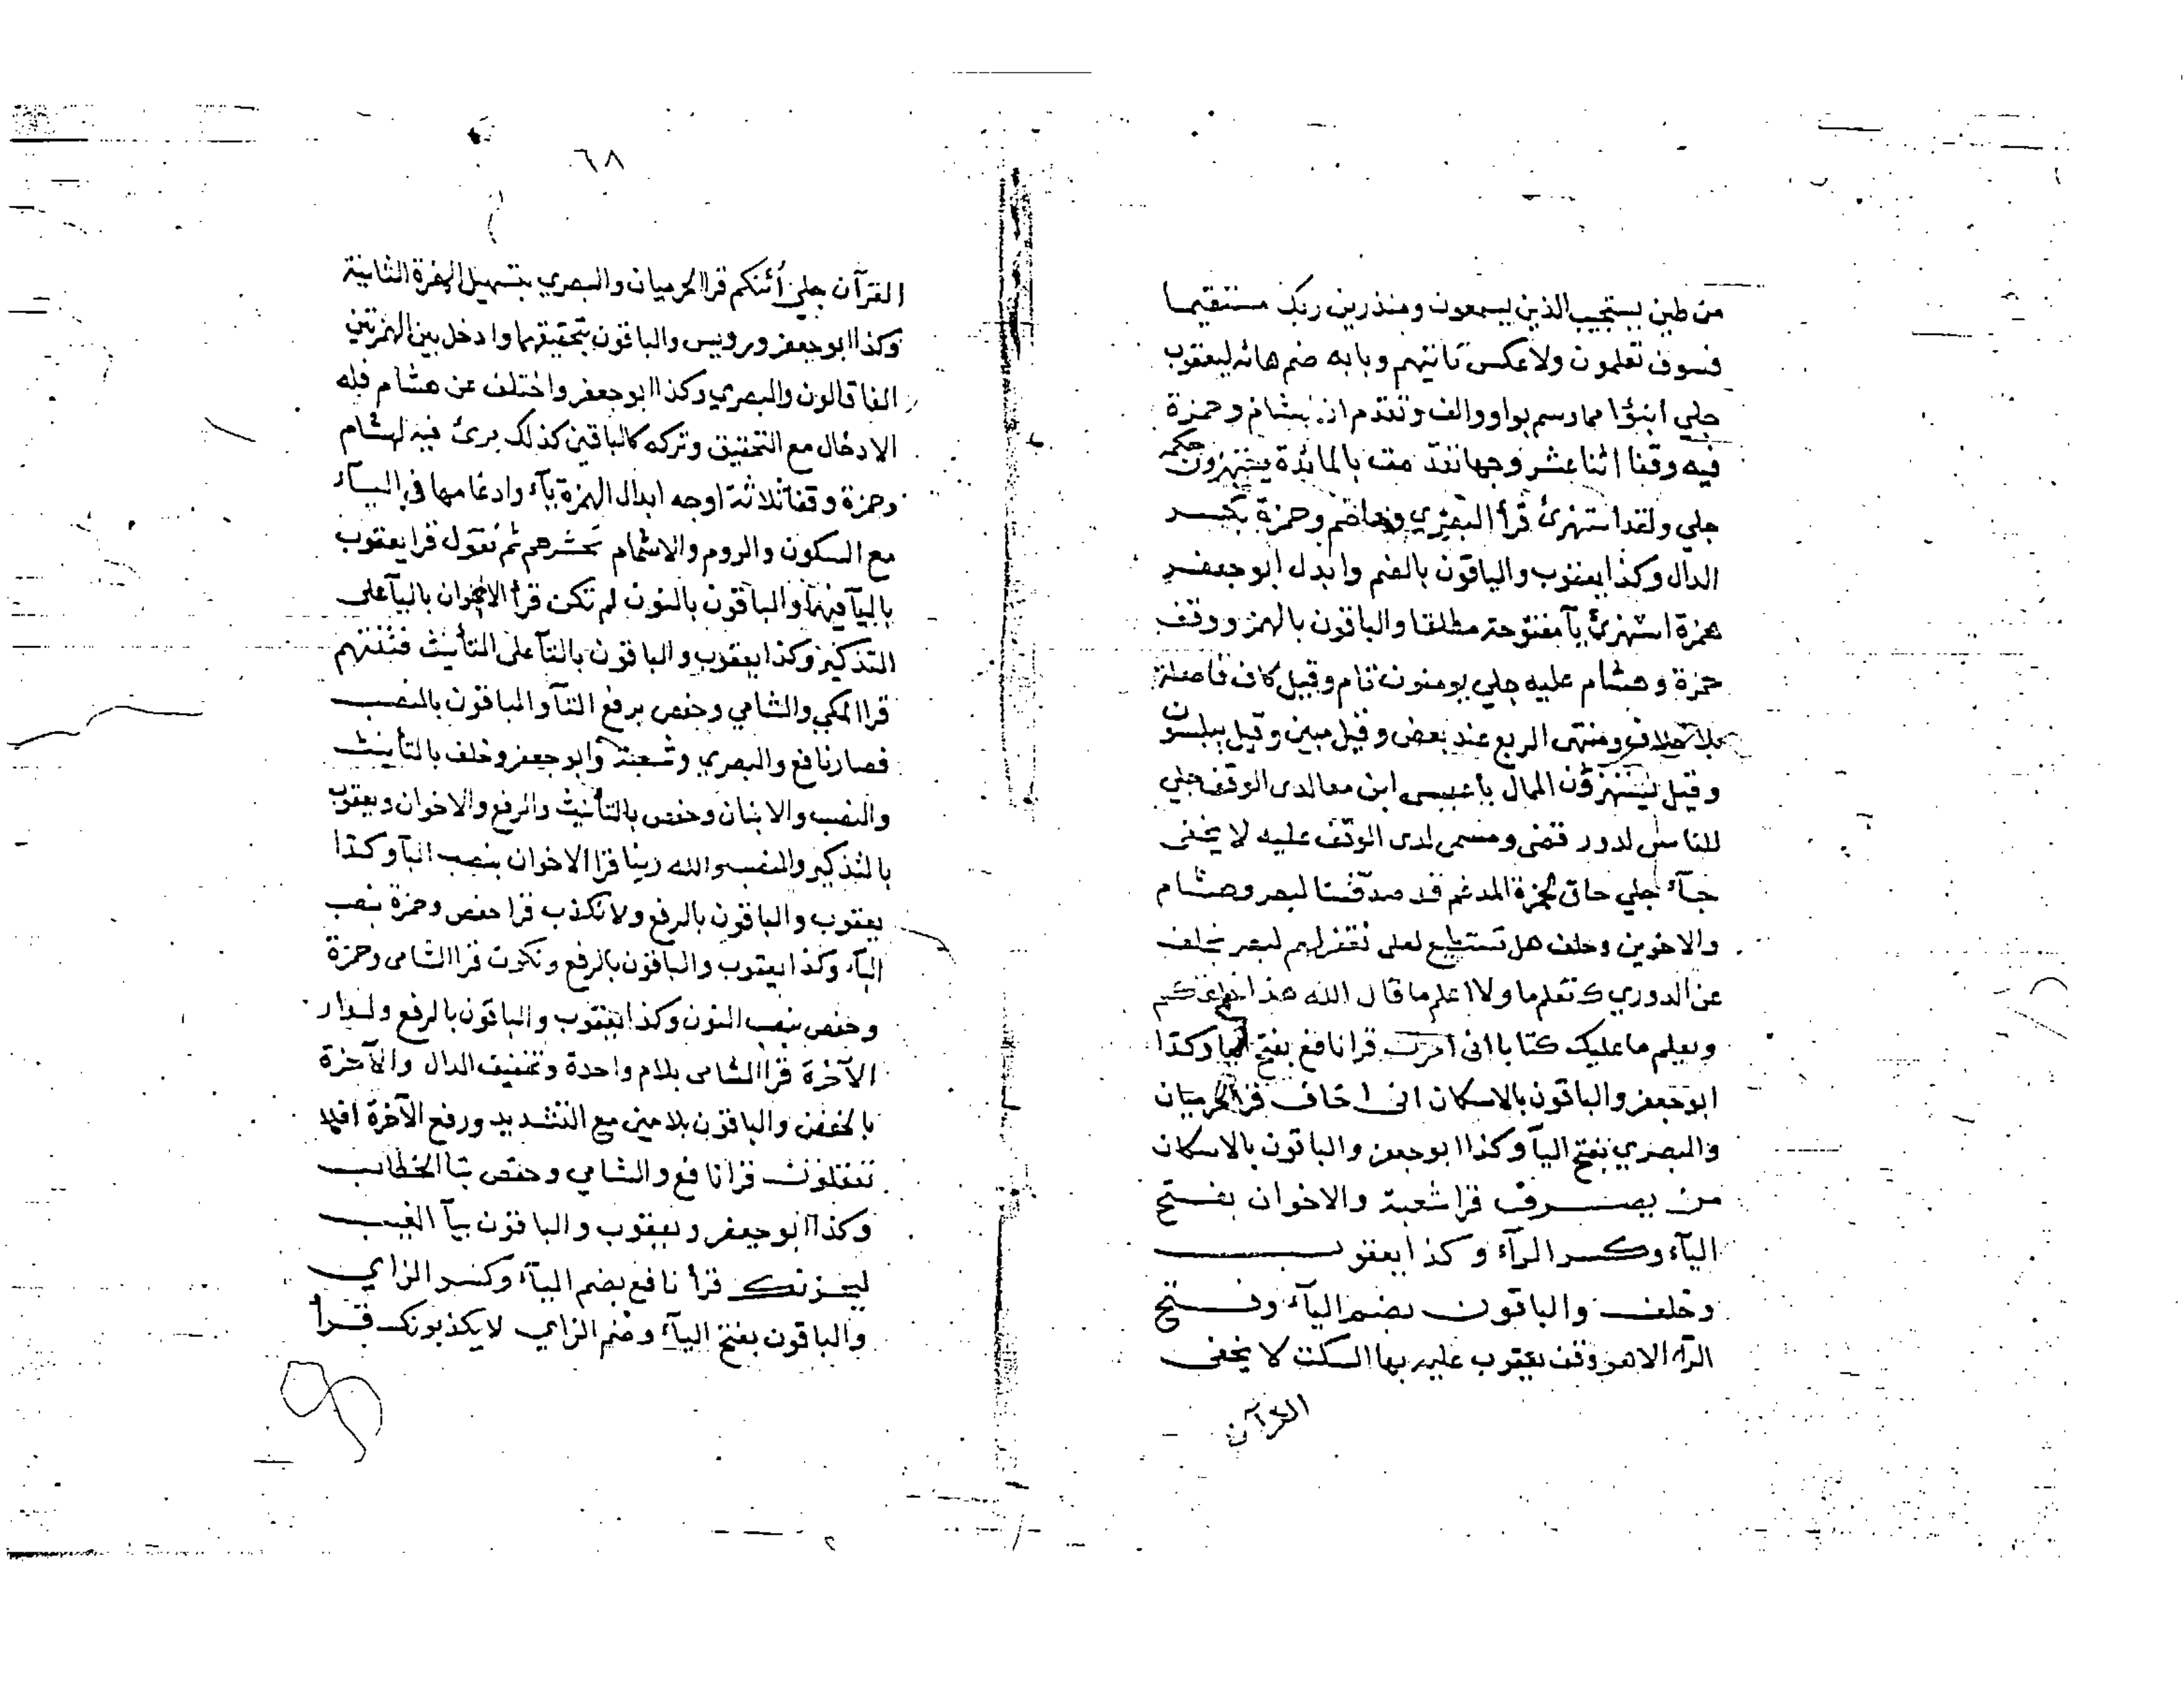 من طين يستجيب الذين يسمعون ومنذرين ربك مستقيما
فسوف تعلمون ولا عكس تاتيهم وبابه ضم هائه ليعقوب
جلي انبؤا مما رسم بواو والف وتقدم ان لهشام وحمزة
فيه وقفا اثنا عشر وجها تقدمت بالمائدة يستهزون حكمه
جلي ولقد استهزئ قرأ البصري وعاصم وحمزة بكسر
الدال وكذا يعقوب والباقون بالضم وابدل ابو جعفر
همزة استهزئ يآ مفتوحة مطلقا والباقون بالهمز ووقف
حمزة وهشام عليه جلي يومنون تام وقيل كاف فاصلة
بلا خلاف ومنتهى الربع عند بعض وقيل مبين وقيل يبلسون
وقيل يستهزؤن الممال باعيسى ابن مع الدى الوقف جلي
للناس لدور قضى ومسمى لدى الوقف عليه لا يخفى
جآء جلي حاق لحمزة المدغم قد صدقتنا لبصر وهشام
والاخوين وخلف هل تستطيع لعلى نغفر لهم لبصر بخلف
عن الدوري ك تعلم ما ولا اعلم ما قال الله هذا خلقكم
ويعلم ما عليك كتابا انى امرت قرا نافع بفتح اليا وكذا
ابو جعفر والباقون بالاسكان انى اخاف قرا الحرميان
والبصري بفتح اليآ وكذا ابو جعفر والباقون بالاسكان
من يصرف قرا شعبة والاخوان بفتح
اليآء وكسر الرآء وكذا يعقوب
وخلف والباقون بضم اليآء وفتح
الرآء الا هو وقف يعقوب عليه بها السكت لا يخفى
القرآن
٦٨
القرآن جلي أئنكم قرا الحرميان والبصري بتسهيل الهمزة الثانية
وكذا ابو جعفر ورويس والباقون بتحقيقهما وادخل بين الهمزتين
الفا قالون والبصري وكذا ابو جعفر واختلف عن هشام فله
الادخال مع التحقيق وتركه كالباقين كذلك برئ فيه لهشام
وحمزة وقفا ثلاثة اوجه ابدال الهمزة يآء وادغامها في اليآء
مع السكون والروم والاشمام نحشرهم ثم نقول قرا يعقوب
باليآ فيهما والباقون بالنون لم تكن قرأ الاخوان باليآ على
التذكير وكذا يعقوب والباقون بالتآ على التأنيث فتنتهم
قرا المكي والشامي وحفص برفع التآ والباقون بالنصب
فصار نافع والبصري وشعبة وابو جعفر وخلف بالتأنيث
والنصب والابنان وحفص بالتأنيث والرفع والاخوان ويعقوب
بالتذكير والنصب والله ربنا قرا الاخوان بنصب البآ وكذا
يعقوب والباقون بالرفع ولا نكذب قرا حفص وحمزة بنصب
البآء وكذا يعقوب والباقون بالرفع ونكون قرا الشامى وحمزة
وحفص بنصب النون وكذا يعقوب والباقون بالرفع ولدار
الآخرة قرا الشامى بلام واحدة وتخفيف الدال والآخرة
بالخفض والباقون بلامين مع التشديد ورفع الآخرة افلا
تعقلون قرا نافع والشامي وحفص بتا الخطاب
وكذا ابو جعفر ويعقوب والباقون بيآ الغيب
ليحزنك قرأ نافع بضم اليآء وكسر الزاي
والباقون بفتح اليآء وضم الزاي لا يكذبونك قرأ